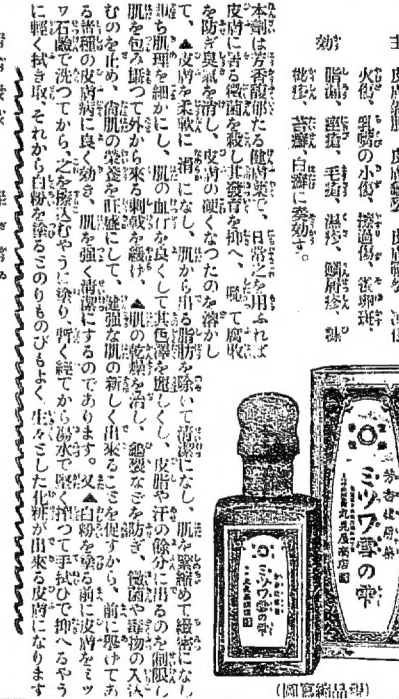 効
火傷、乳嘴の小傷、擦過傷、雀卵斑、
脂漏、痤瘡、毛瘡、濕疹、鱗屑疹、糠
粃疹、苔癬、白癬に奏効す。
本劑は芳香馥郁たる健膚藥で、日常之を用ふれば
皮膚に害る黴菌を殺し其發育を抑へ、腐敗
を防ぎ臭氣を消し、皮膚の硬くなつたのを溶かし
て、▲皮膚を柔軟に滑になし、肌から出る脂肪を除いて清潔になし、肌を緊縮めて緻密になし
即ち肌理を細かにし、肌の血行を良くして其色澤を麗しくし、皮脂や汗の餘分に出るのを制限し
肌を包み つて外から來る刺戟を緩け、▲肌の乾燥を治し、龜裂などを防ぎ、黴菌や毒物の入込
むのを止め、尚肌の榮養を旺盛にして、健強な肌の新しく出來ることを促すから、前に擧げてあ
る諸種の皮膚病に良く効き、肌を強く清潔にするのであります。又▲白粉を塗る前に皮膚をミツ
ワ石鹼で洗つてから、之を擦込むやうに塗り、暫く經てから湯水で輕く つて手拭ひで抑へるやう
に輕く拭き取、それから白粉を塗るとのりものびもよく、生々とした化粧が出來る皮膚になります
芳香健膚藥
ミツワ雪の雫
丸見屋商店
ミツワ雪の雫
(現品縮寫圖)